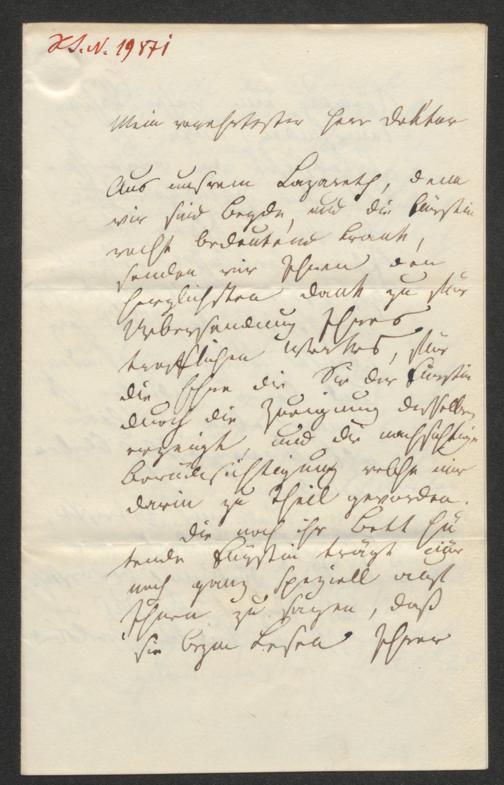 H.I.N. 19871
Mein verehrtester Herr Doktor
Aus unsrem Lazareth, denn
wir sind beyde, und die Fürstin
recht bedeutend krank,
senden wir Ihnen den
herzlichsten Dank zu für
Uebersendung Ihres
trefflichen Werkes, für
die Ehre die Sie der Fürstin
durch die Zueignung desselben
erzeigt, und die nachsichtige
Berücksichtigung welche mir
darin zu Theil geworden.
Die noch ihr Bett hü
tende Fürstin trägt mir
noch ganz speziell auf
Ihnen zu sagen, daß
sie beym Lesen Ihrer